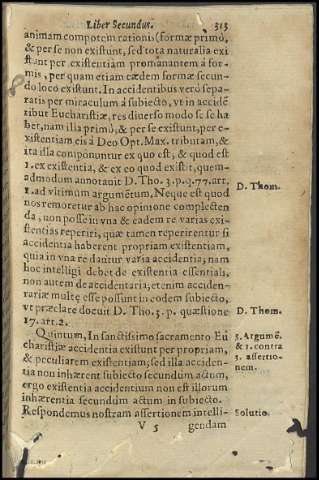 Liber Secundus. 313
animam compotem rationis (formæ primò,
& per se non existunt, sed tota naturalia exi
stunt per existentiam promanantem à for-
mis, per quam etiam eædem formæ secun-
do loco existunt. In accidentibus verò sepa-
ratis per miraculum à subiecto, vt in acciden
tibus Eucharistiæ, res diuerso modo se se ha
bet, nam illa primò, & per se existunt, per e-
xistentiam eis à Deo Opt. Max. tributam, &
ita illa componuntur ex quo est, & quod est
1. ex existentia, & ex eo quod existit, quem-
admodum annotauit D. Tho. 3. p. q. 77. art.
1. ad vltimum argumẽtum. Neque est quod
D. Thom.
nos remoretur ab hac opinione complecten
da, non posse in vna & eadem re varias exi-
stentias reperiri, quæ tamen reperirentur si
accidentia haberent propriam existentiam,
quia in vna re dantur varia accidentia; nam
hoc intelligi debet de existentia essentiali,
non autem de accidentaria, etenim acciden-
rariæ multę esse possunt in eodem subiecto,
vt præclarè docuit D. Tho. 3. p. quæstione
D. Thom.
17. art. 2.
Quintum, In sanctissimo sacramento Eu
5. Argumẽ.
charistiæ accidentia existunt per propriam,
& 1. contra
& peculiarem existentiam; sed illa acciden-
3. assertio-
tia non inhærent subiecto secundum actum,
nem.
ergo existentia accidentium non est illorum
inhærentia secundum actum in subiecto.
Respondemus nostram assertionem intelli-
Solutio.
V 5 gendam